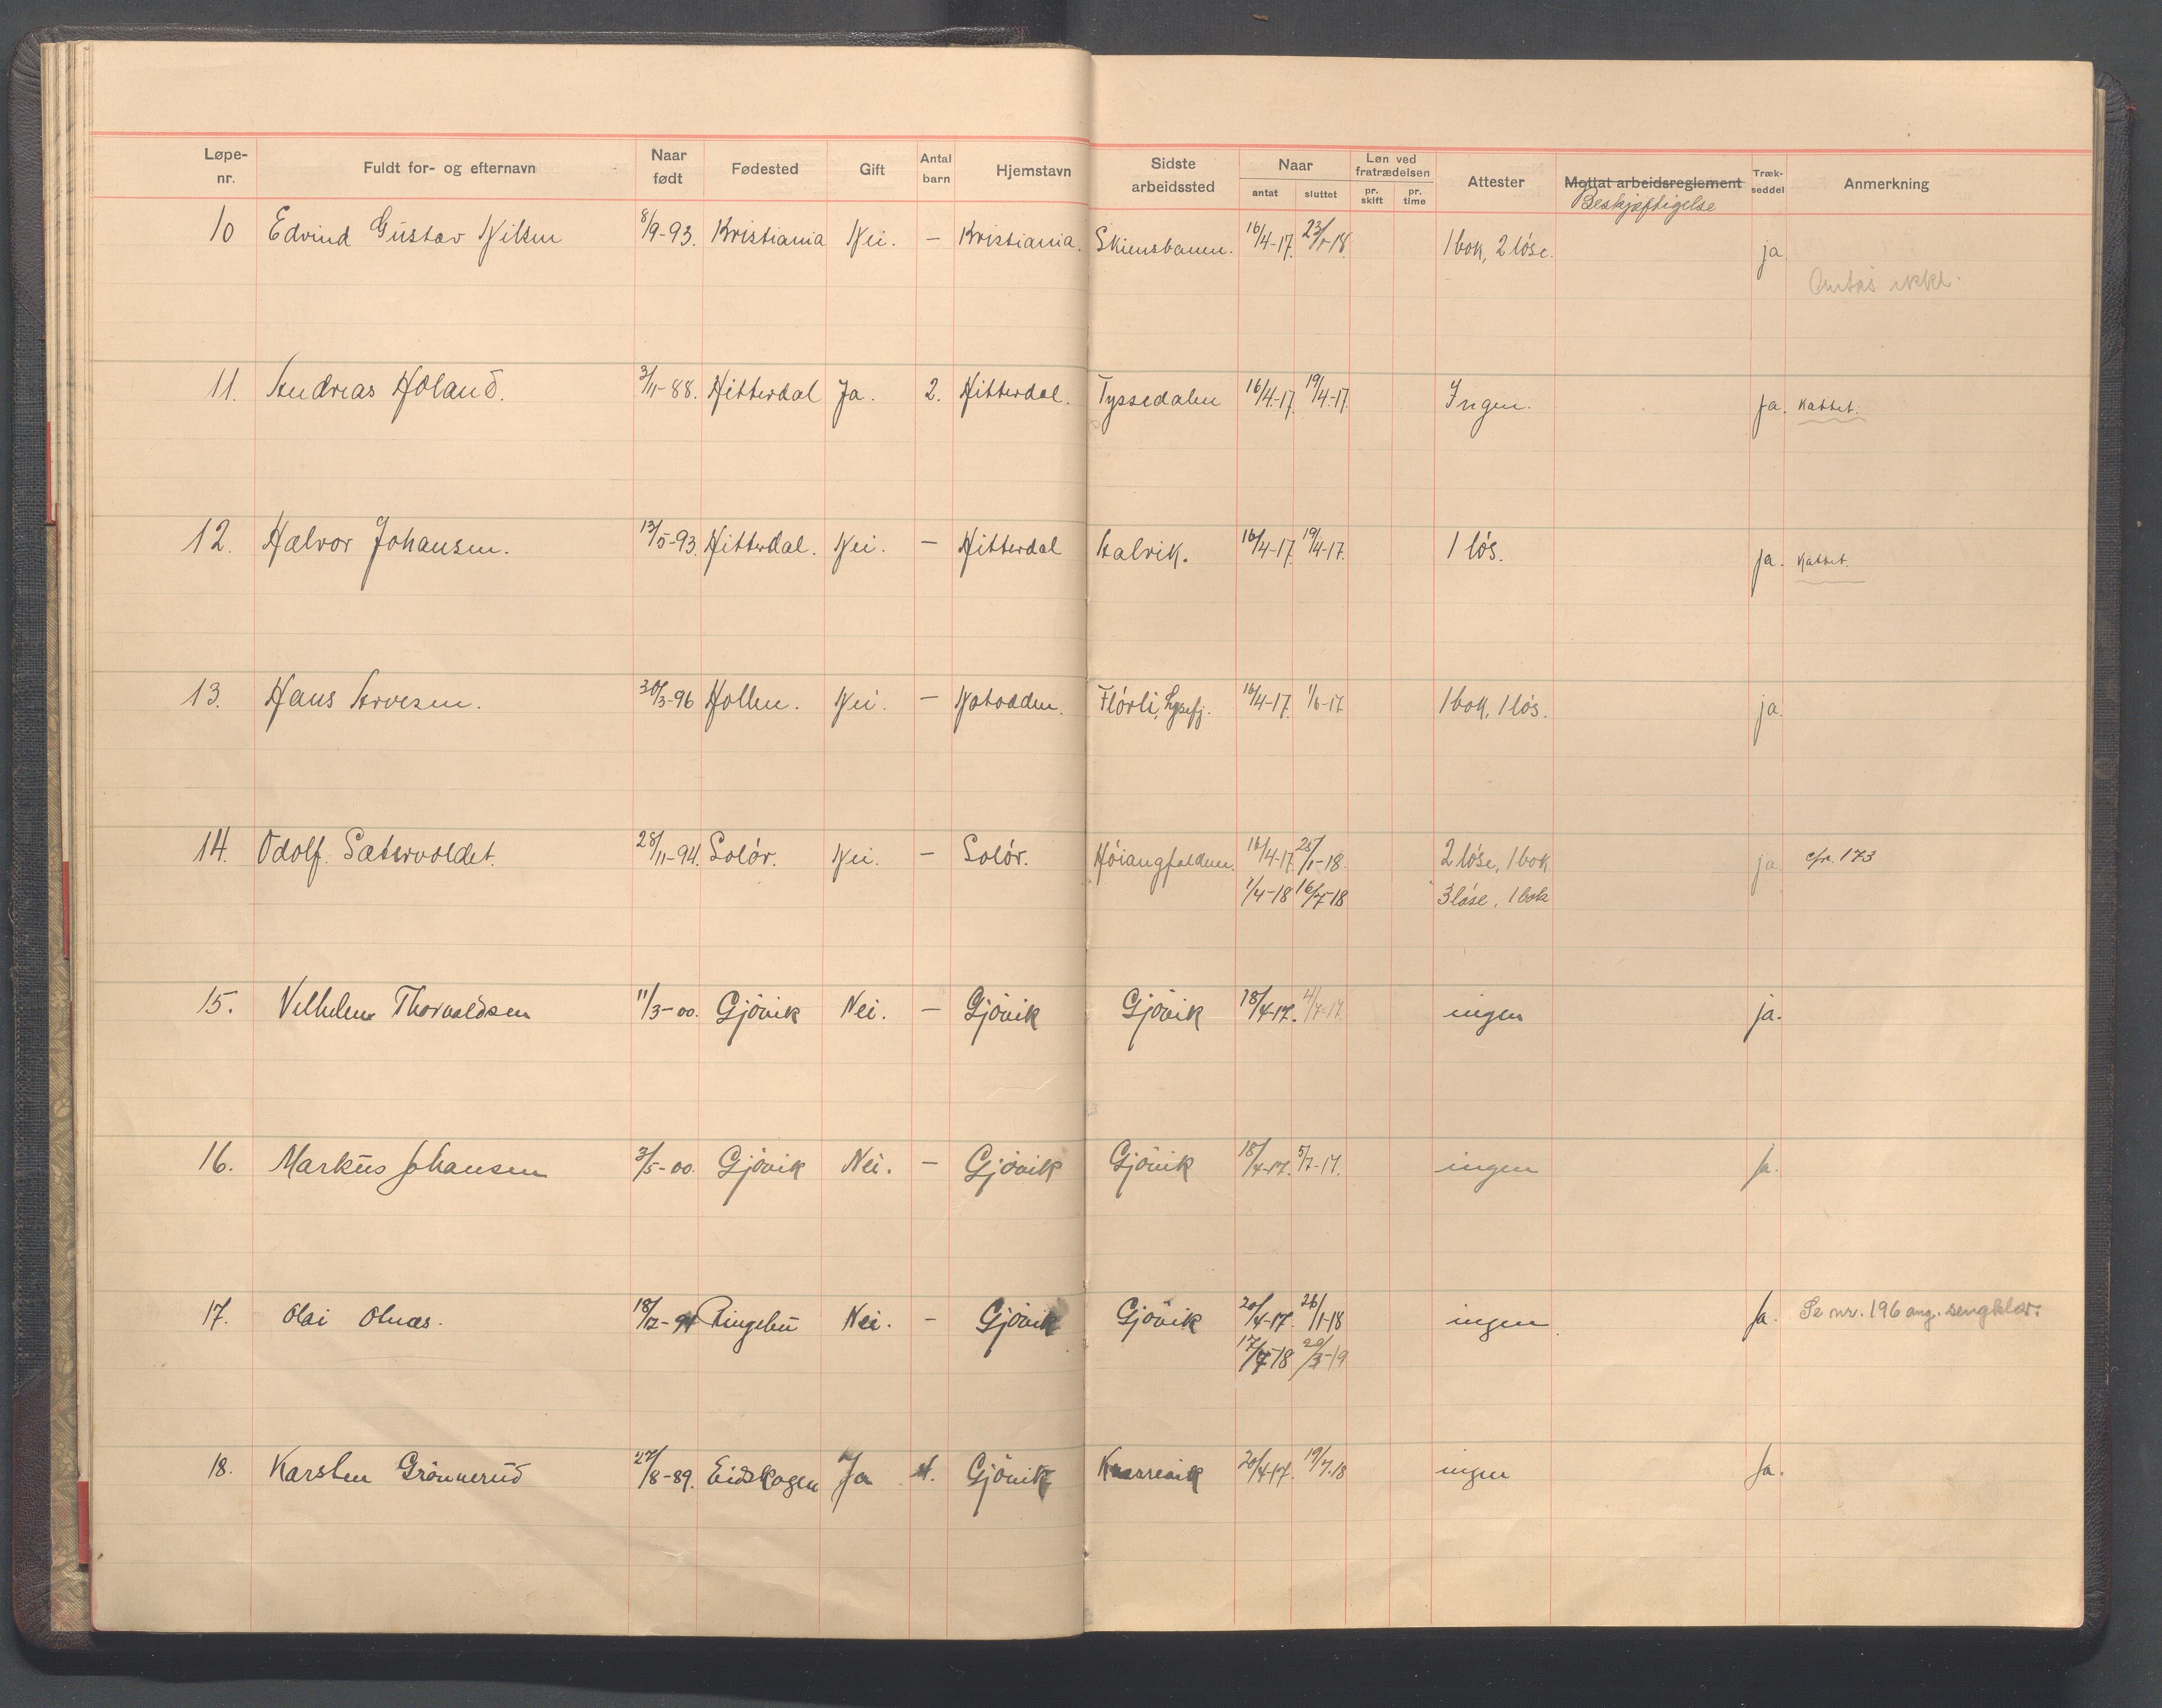 Løpe-nr. Fuldt for- og efternavn Naar født Fødested Gift Antal barn Hjemstavn Sidste arbeidssted Naar antat sluttet Løn ved fratrædelsen pr. skift pr. time Attester Mottat arbeidsreglement Beskjæftigelse Træk-seddel Anmerkning
10 Edvind Gustav Nilsen 8/9-93. Kristiania Nei. – Kristiania. Skiensbanen. 16/4-17. 23/1-18. 1 bok, 2 löse. ja.
Antas ikke.
11. Andreas Holand. 3/11-88. Hitterdal Ja. 2. Hitterdal. Tyssedalen 16/4-17. 19/4-17. Ingen. Ja. Kattet.
12. Halvor Johansen. 13/5-93. Hitterdal. Nei. – Hitterdal Aalvik. 16/4-17. 19/4-17. 1 lós. Ja. Kattet.
13. Hans Arvesen. 30/3-96 Hollen. Nei. – Notodden. Flórli, Lysefj. 16/4-17. 1/6-17. 1 bok, 1 lós. ja.
14. Odolf Sætervoldet. 28/11-94. Solór. Nei. – Solór. Hóiangfaldene. 16/4-17. 25/1-18. 2 lóse, 1 bok ja. cfr. 173
1/4-18 16/7-18 3 løse, 1 bok
15. Vilhelm Thorvaldsen 11/3-00. Gjövik Nei. – Gjövik Gjövik 18/4-17. 4/7-17 ingen ja.
16. Markus Johansen 3/5-00. Gjövik Nei. – Gjövik Gjövik 18/4-17. 5/7-17. ingen Ja.
17. Olai Olnæs. 18/12-94 Ringebu Nei. – Gjövik Gjövik 20/4-17. 26/1-18 ingen Ja. Se nr. 196 ang. sengklær.
17/7-18 20/3-19
18. Karsten Grönnerud 27/8-89. Eidskogen Ja 4. Gjövik 20/4-17. 19/7-18 ingen Ja.